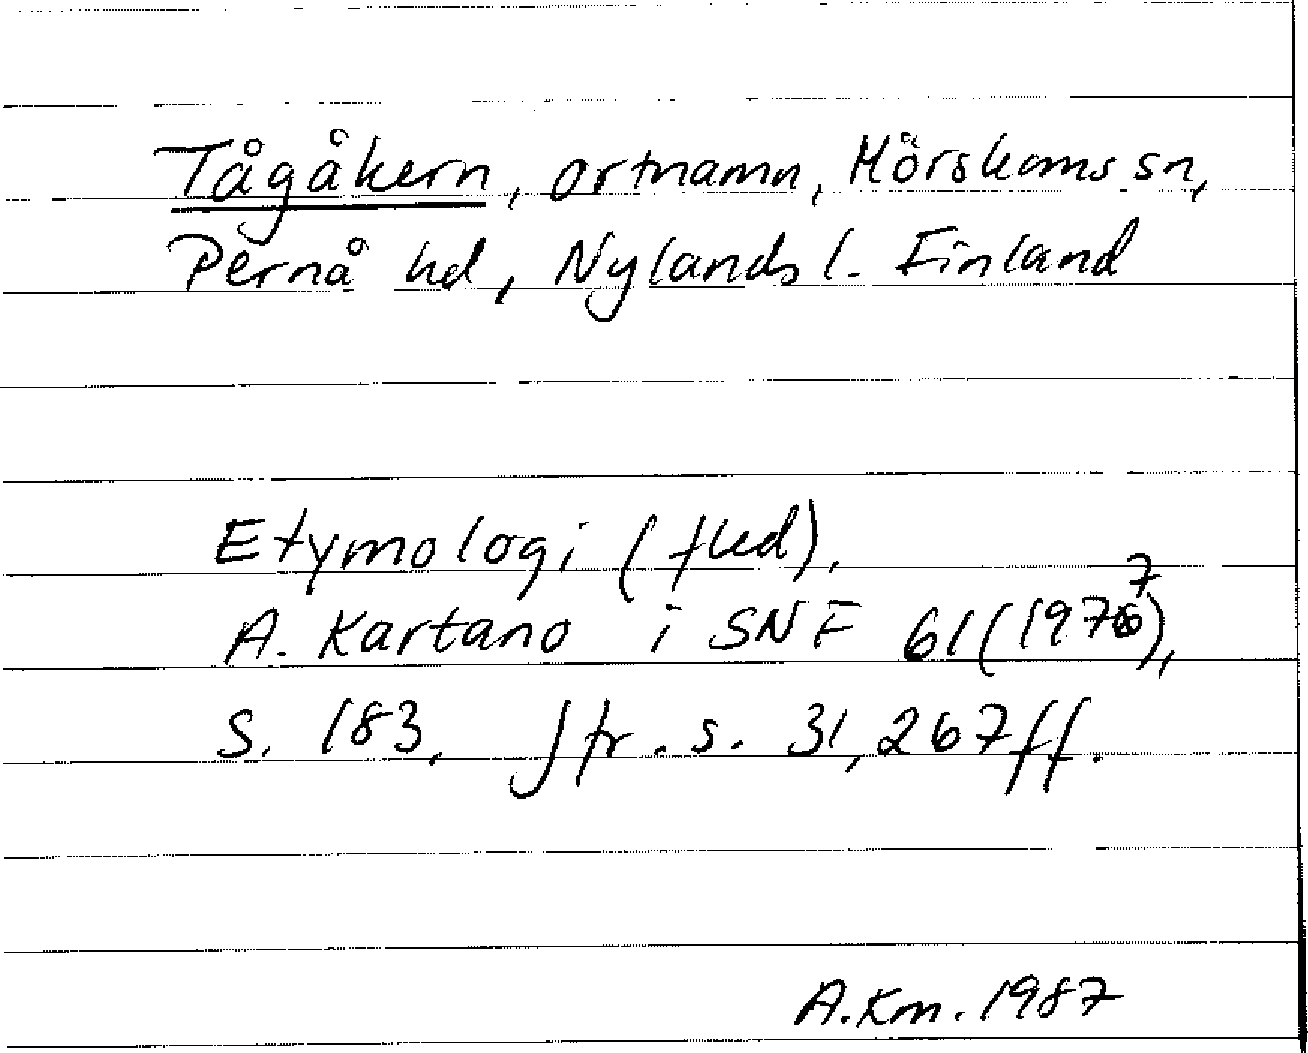 Tågåkern, ortnamn, Mörskoms sn,
Pernå hd, Nylands l. Finland
Etymologi (fled),
A. Kartano i SNF 61 (1977),
S. 183, Jfr. s. 31, 267 ff.
A.Km. 1987